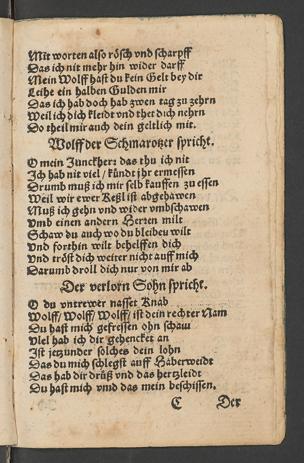 Mit worten also rösch vnd scharpff
Das ich nit mehr hin wider darff
Mein Wolff hast du kein Gelt bey dir
Leihe ein halben Gulden mir
Das ich hab doch hab zwen tag zu zehrn
Weil ich dich kleidt vnd thet dich nehrn
So theil mir auch dein geltlich mit.
Wolff der Schmarotzer spricht.
O mein Junckherr das thu ich nit
Ich hab nit viel / kündt jhr ermessen
Drumb muß ich mir selb kauffen zu essen
Weil wir ewer Keßl ist abgehawen
Muß ich gehn vnd wider vmbschawen
Vmb einen andern Herren milt
Schaw du auch wo du bleiben wilt
Vnd forthin wilt behelffen dich
Vnd tröst dich weiter nicht auff mich
Darumb droll dich nur von mir ab
Der verlorn Sohn spricht.
O du vntrewer nasser Knab
Wolff / Wolff / Wolff / ist dein rechter Nam
Du hast mich gefressen ohn scham
Viel hab ich dir gehencket an
Ist jetzunder solches dein lohn
Das du mich schlegst auff Haberweidt
Das hab dir drüß vnd das hertzleidt
Du hast mich vmb das mein beschissen.
C Der